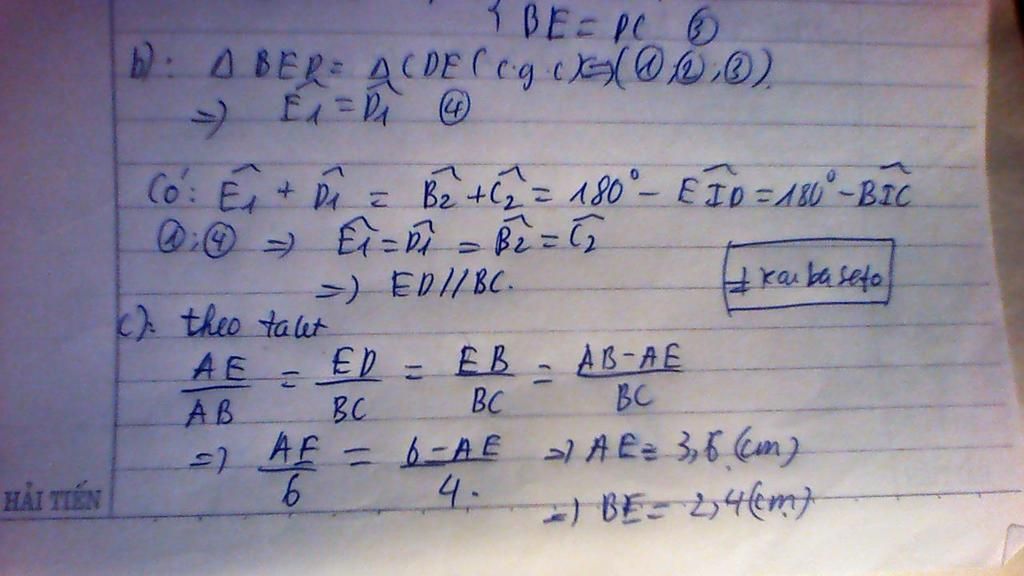 { BE = DC ⑤
b): Δ BED = ΔCDE (c.g.c) (=> (①,②,③).
=> Ê1 = D̂1 ④
Có: Ê1 + D̂1 = B̂2 + Ĉ2 = 180° - EÎD = 180° - BÎC
①;④ => Ê1 = D̂1 = B̂2 = Ĉ2
=> ED // BC.
c): theo talet
AE/AB = ED/BC = EB/BC = AB-AE/BC
=> AE/6 = 6-AE/4. => AE = 3,6 (cm)
=> BE = 2,4 (cm)
HẢI TIẾN